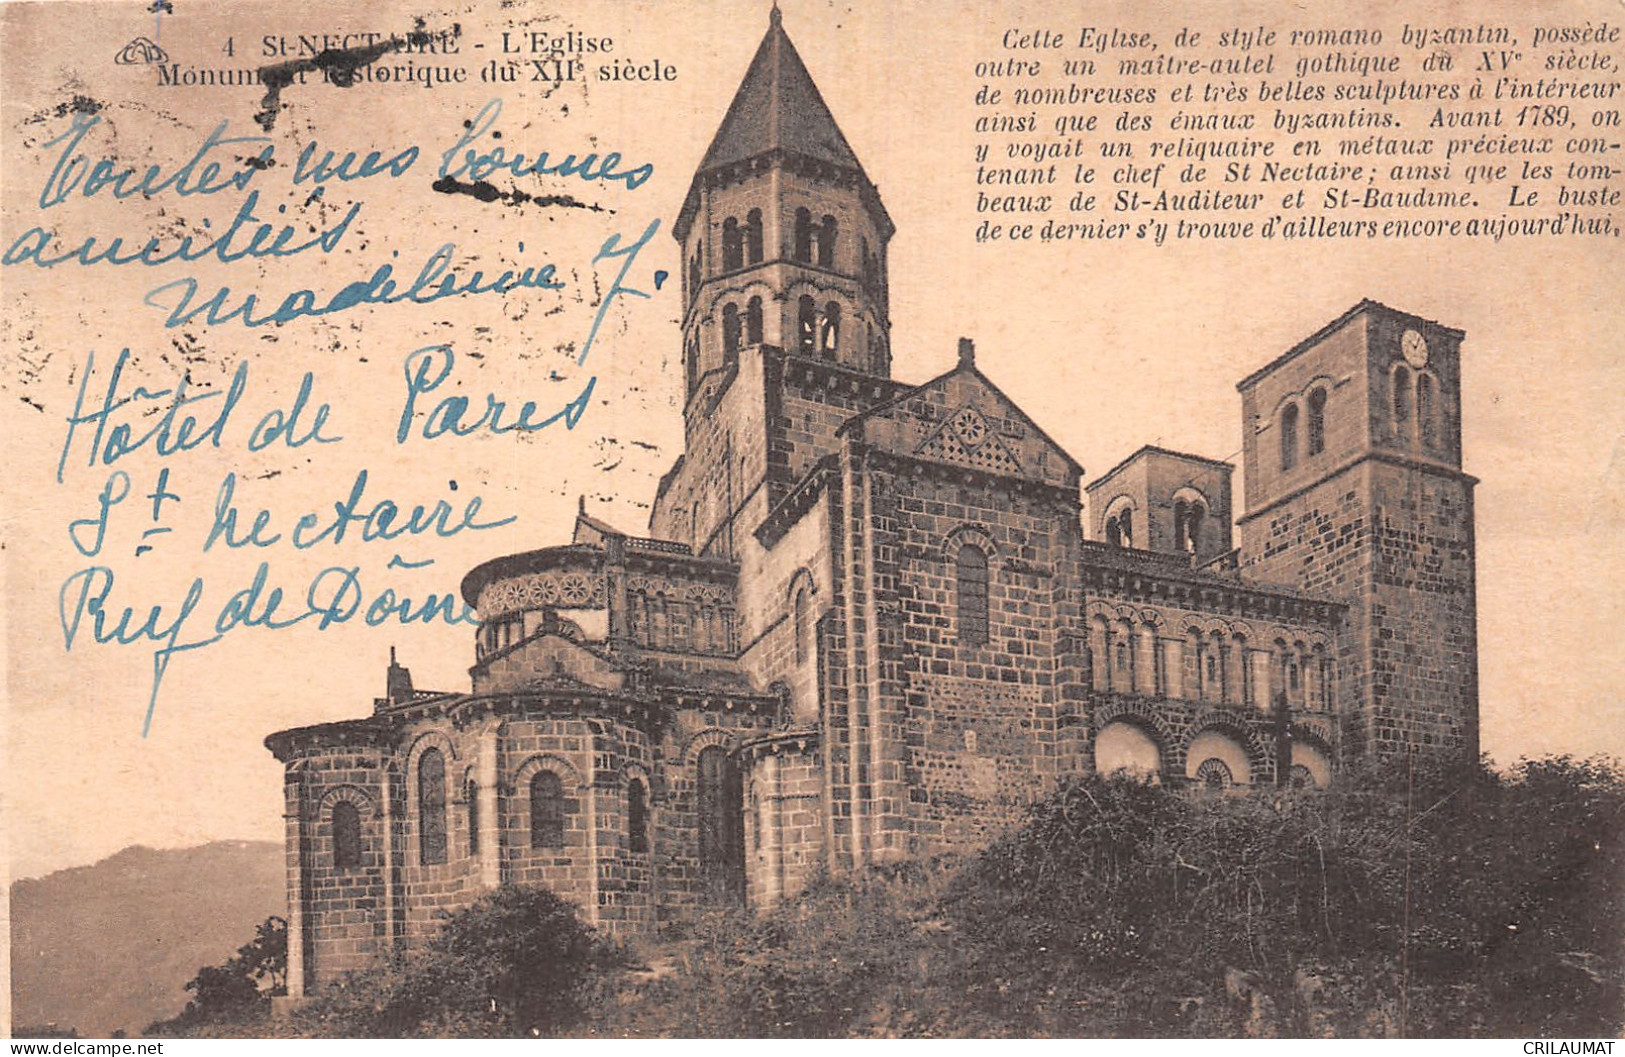 CAP
4 St-NECTAIRE - L'Eglise
Monument historique du XIIe siècle
Cette Eglise, de style romano byzantin, possède
outre un maître-autel gothique du XVe siècle,
de nombreuses et très belles sculptures à l'intérieur
ainsi que des émaux byzantins. Avant 1789, on
y voyait un reliquaire en métaux précieux con-
tenant le chef de St Nectaire; ainsi que les tom-
beaux de St-Auditeur et St-Baudime. Le buste
de ce dernier s'y trouve d'ailleurs encore aujourd'hui.
Toutes mes bonnes
amitiés
Madeleine Y.
Hôtel de Paris
St Nectaire
Puy de Dôme
delcampe.net
CRILAUMAT